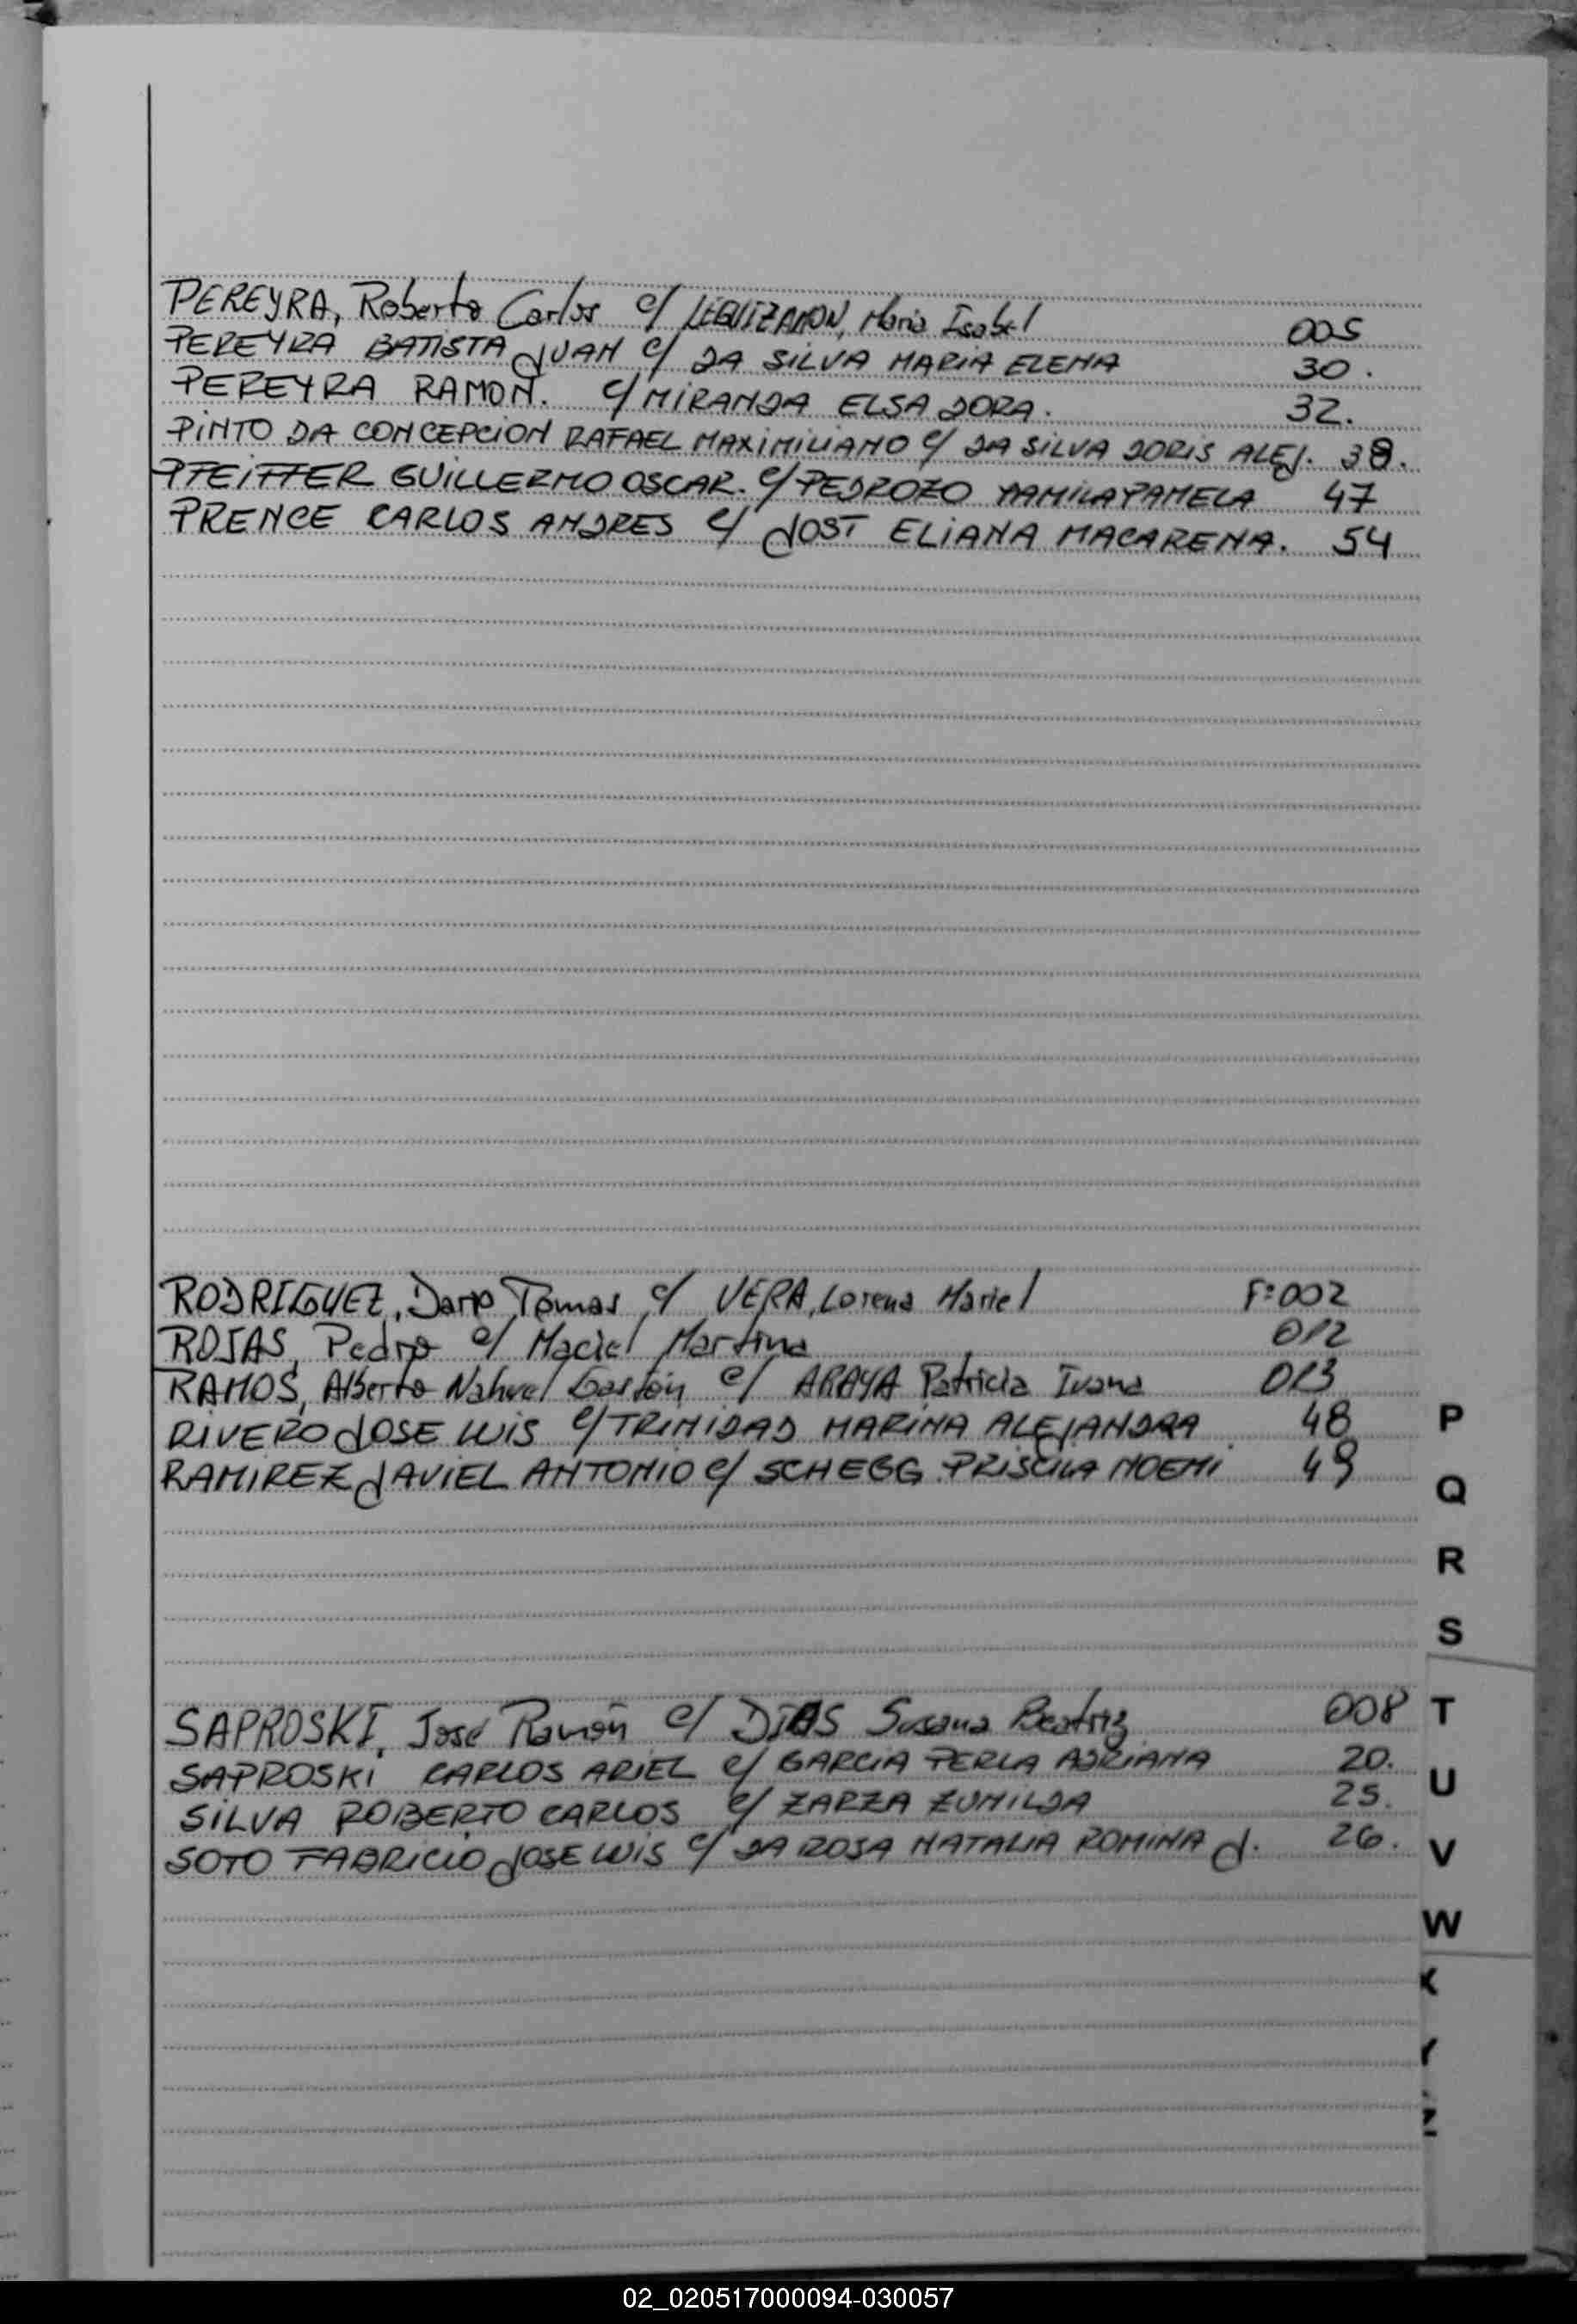 PEREYRA, Roberto Carlos c/ LEGUIZAMON, Maria Isabel 005
PEREYRA BATISTA JUAN c/ DA SILVA MARIA ELENA 30.
PEREYRA RAMON. c/ MIRANDA ELSA DORA. 32.
PINTO DA CONCEPCION RAFAEL MAXIMILIANO c/ DA SILVA DORIS ALEJ. 38.
PFEIFFER GUILLERMO OSCAR. c/ PEDROZO YAMILA PAMELA 47
PRENCE CARLOS ANDRES c/ JOST ELIANA MACARENA. 54
RODRIGUEZ, Dario Tomas c/ VERA, Lorena Mariel F:002
ROJAS, Pedro c/ Maciel Martina 012
RAMOS, Alberto Nahuel Gastón c/ ARAYA Patricia Ivana 013
RIVERO JOSE LUIS c/ TRINIDAD MARINA ALEJANDRA 48
RAMIREZ JAVIEL ANTONIO c/ SCHEGG PRISCILA NOEMI 49
SAPROSKI, José Ramón c/ DIAS Susana Beatriz 008
SAPROSKI CARLOS ARIEL c/ GARCIA PERLA ADRIANA 20.
SILVA ROBERTO CARLOS c/ ZARZA ZUNILDA 25.
SOTO FABRICIO JOSE LUIS c/ DA ROSA NATALIA ROMINA J. 26.
P
Q
R
S
T
U
V
W
X
Y
Z
02_020517000094-030057